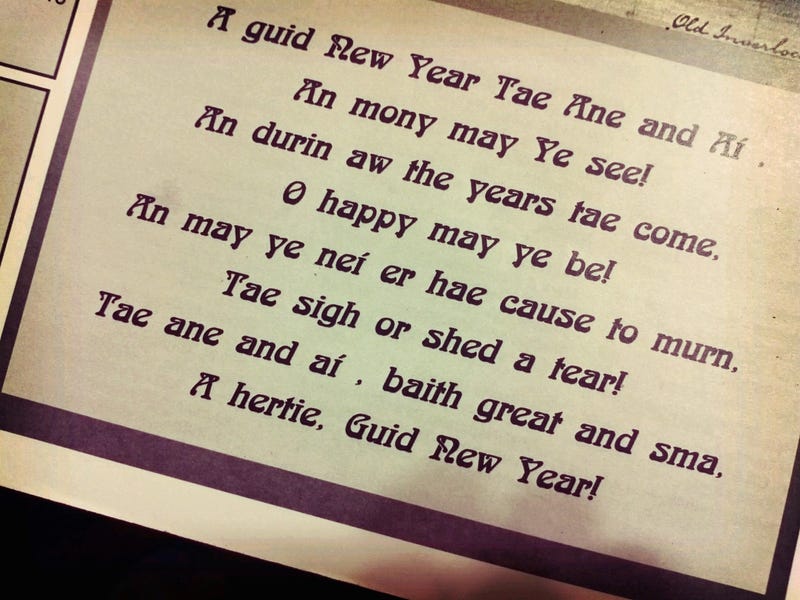 Old
A guid New Year Tae Ane and Aí ,
An mony may Ye see!
An durin aw the years tae come,
O happy may ye be!
An may ye neí er hae cause to murn,
Tae sigh or shed a tear!
Tae ane and aí , baith great and sma,
A hertie, Guid New Year!